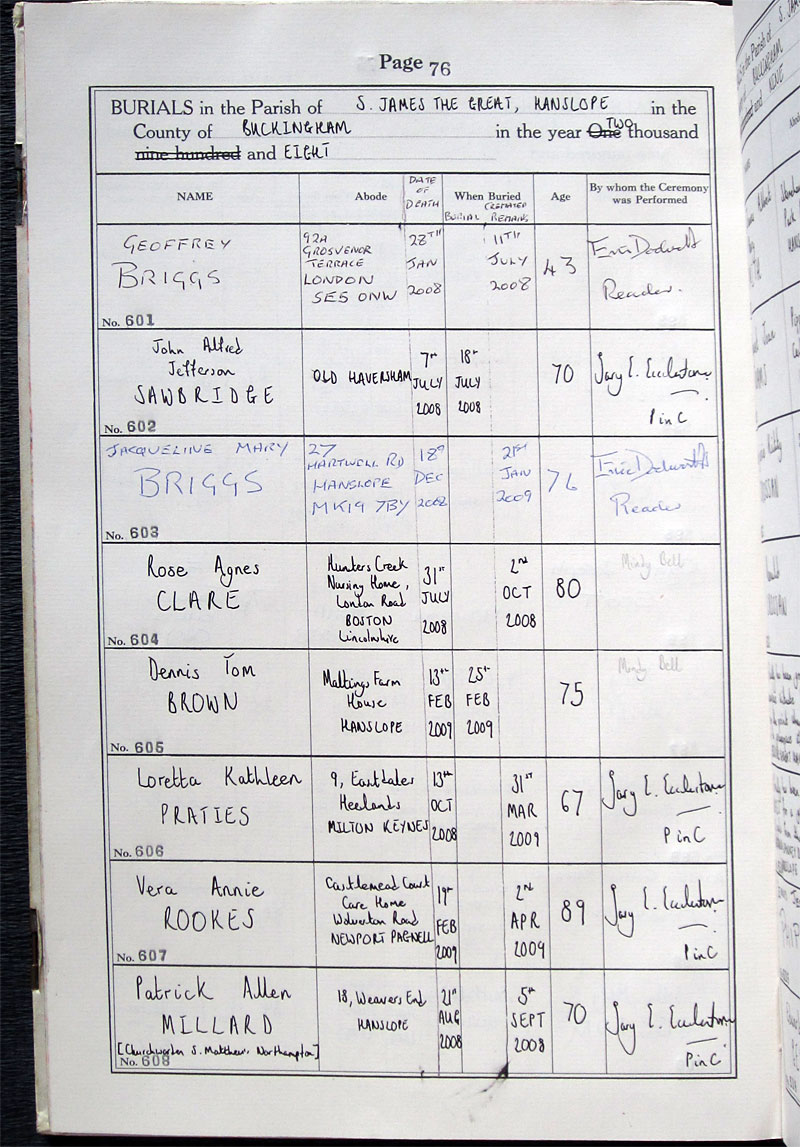 Page 76
BURIALS in the Parish of S. JAMES THE GREAT, HANSLOPE in the
County of BUCKINGHAM in the year One TWO thousand
nine hundred and EIGHT
NAME Abode DATE OF DEATH When Buried BURIAL CREMATED REMAINS Age By whom the Ceremony was Performed
GEOFFREY
BRIGGS
No. 601
92A
GROSVENOR
TERRACE
LONDON
SE5 0NW
28TH
JAN
2008
11TH
JULY
2008
43
Eric Dodworth
Reader.
John Alfred
Jefferson
SAWBRIDGE
No. 602
OLD HAVERSHAM
7th
JULY
2008
18th
JULY
2008
70
Gary E. Ecclestone
P in C
JACQUELINE MARY
BRIGGS
No. 603
27
HARTWELL RD
HANSLOPE
MK19 7BY
18th
DEC
2008
21st
JAN
2009
76
Eric Dodworth
Reader
Rose Agnes
CLARE
No. 604
Hunters Creek
Nursing Home,
London Road
BOSTON
Lincolnshire
31st
JULY
2008
2nd
OCT
2008
80
Mindy Bell
Dennis Tom
BROWN
No. 605
Maltings Farm
House
HANSLOPE
13th
FEB
2009
25th
FEB
2009
75
Mindy Bell
Loretta Kathleen
PRATIES
No. 606
9, Eastdales
Heelands
MILTON KEYNES
13th
OCT
2008
31st
MAR
2009
67
Gary E. Ecclestone
P in C
Vera Annie
ROOKES
No. 607
Castlemead Court
Care Home
Wolverton Road
NEWPORT PAGNELL
19th
FEB
2009
2nd
APR
2009
89
Gary E. Ecclestone
P in C
Patrick Allen
MILLARD
[Churchwarden S. Matthew, Northampton]
No. 608
18, Weavers End
HANSLOPE
21st
AUG
2008
5th
SEPT
2008
70
Gary E. Ecclestone
P in C